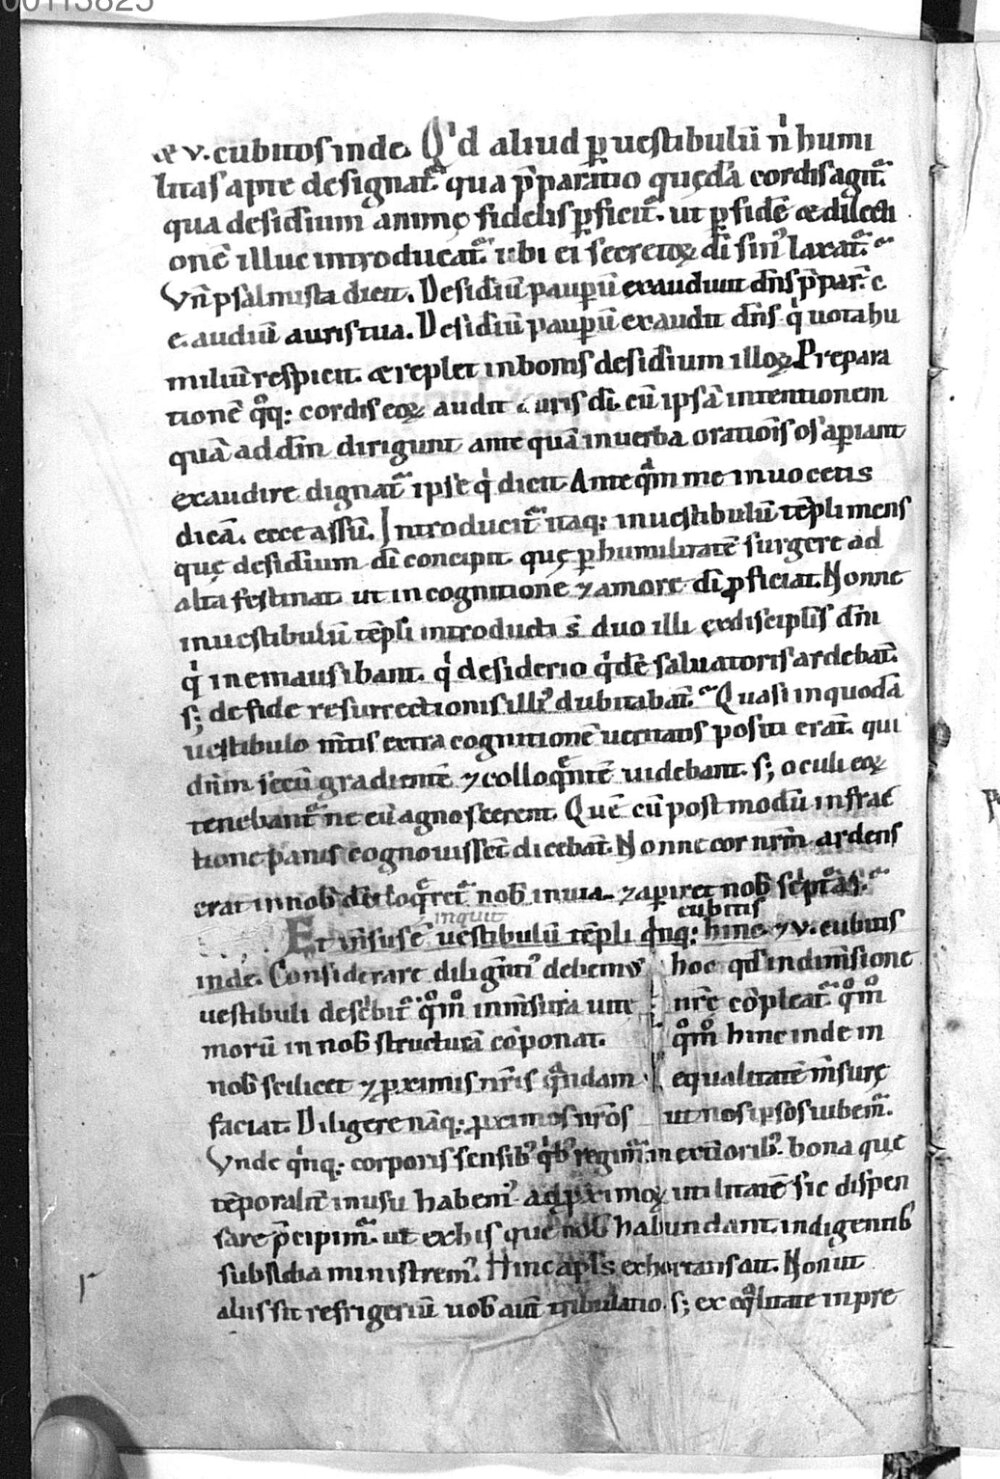 00113825
& v. cubitos inde. Qͥd aliud ꝑ uestibulū nͥ humi
litas apte designatᷣ. qua p̄paratio quędā cordis agitᷣ.
qua desiderium animę fidelis ꝑficitᷣ. ut ꝑ fidē & dilecti
onē illuc introducatᷣ. ubi ei secretoꝝ dī sinꝰ laxatᷣ.
Vn̄ psalmista dicit. Desid̄iū pauꝑū exaudiuit dn̄s p̄par̄
audiuit auris tua. Desid̄iū pauꝑū exaudit dn̄s. qͥ uota hu
miliū respicit. & replet in bonis desid̄ium illoꝝ. Prepara
tionē q̊q; cordis eoꝝ audit auris dī. cū ipsā intentionem
quā ad dīn dirigunt ante quā in uerba orationis os aꝑiant
exaudire dignatᷣ ipse qͥ dicit Ante qᷓm me inuocetis
dicā. ecce assū. Introducitᷣ itaq; in uestibulū tēpli mens
quę desid̄ium dī concipit. quę ꝑ humilitatē surgere ad
alta festinat. ut in cognitione ⁊ amore dī ꝓficiat. Nonne
in uestibulū tēpli introducti s̄ duo illi ex discipulis dn̄i
qͥ in emaus ibant. qͥ desiderio qͥdē saluatoris ardebāt.
s; de fide resurrectionis illiꝰ dubitabāt. Quasi in quodā
uestibulo m̄tis extra cognitionē ueritatis positi erāt. qui
dn̄m secū gradientē ⁊ colloqͤntē uidebant. s; oculi eoꝝ
tenebantᷣ ne eū agnoscerent. Quē cū post modū in frac
tione panis cognouissēt dicebāt. Nonne cor nr̄m ardens
erat in nob̄ dū loqͤretᷣ nob̄ in uia. ⁊ aꝑiret nob̄ sc̄pturas.
inquit cubitis
Et m̄sus ē uestibulū tēpli qͥnq; hinc. ⁊ v. cubitis
inde. Considerare diligent̄ debemꝰ hoc qd̄ in dim̄sione
uestibuli desc̄bitᷣ. q̊m̊ in m̄sura uir nr̄e cōpleatᷣ. q̊m̊
morū in nob̄ structurā cōponat. q̊m̊ hinc inde in
nob̄ scilicet ⁊ ꝓximis nr̄is qᷓndam equalitatē m̄surę
faciat. Diligere nāq; ꝓximos nr̄os ut nos ipsos iubemᷣ.
Vnde qͥnq; corporis sensibꝰ qͥbꝰ regimᷣ in ext̄ioribꝰ. bona que
tēporalit̄ in usu habemꝰ ad ꝓximoꝝ utilitatē sic dispen
sare p̄cipimᷣ. ut ex his que nob̄ habundant. indigentibꝰ
subsidia ministremꝰ. Hinc apl̄s exhortans ait. Non ut
aliis sit refrigeriū uob̄ aut̄ tribulatio. s; ex eqͣlitate in pre